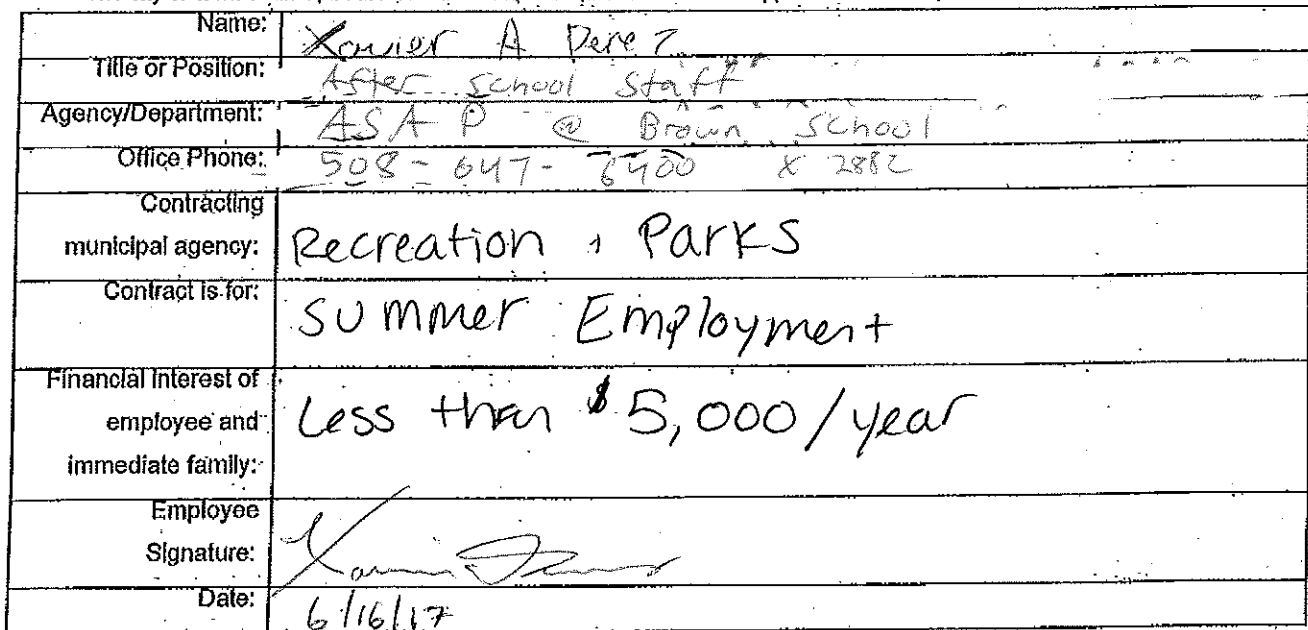 Name: Xavier A Perez
Title or Position: After School Staff
Agency/Department: ASAP @ Brown School
Office Phone: 508-647-6400 x 2882
Contracting
municipal agency: Recreation & Parks
Contract is for: Summer Employment
Financial interest of
employee and Less than $5,000/year
immediate family:
Employee
Signature:
Date: 6/16/17